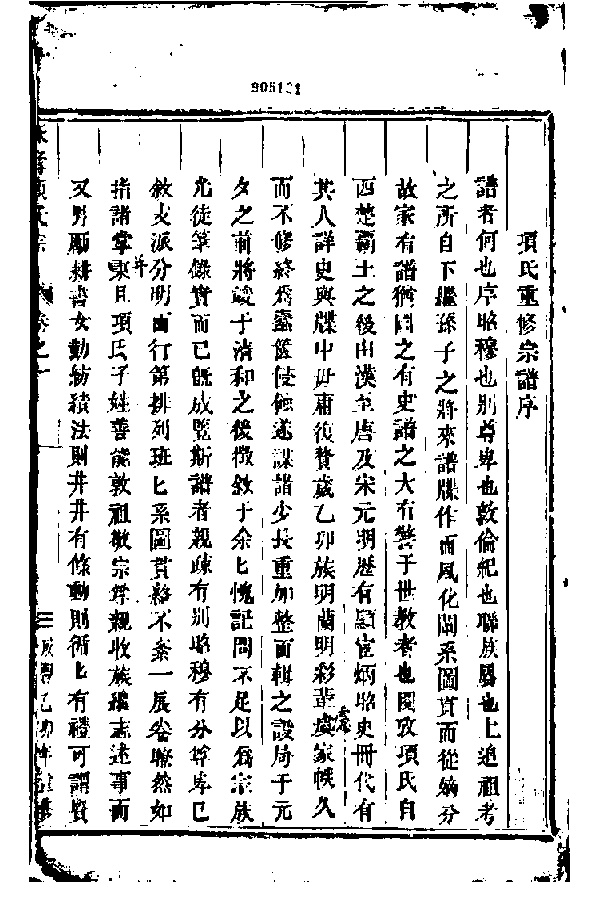 905121
項氏重修宗譜序
譜者何也序昭穆也別尊卑也敦倫紀也聯族屬也上追祖考
之所自下繼孫子之將來譜牒作而風化關系圖賁而從嫡分
故家有譜猶國之有史譜之大有警于世教者也國攷項氏自
西楚霸王之後由漢至唐及宋元明歷有顯宦炳昭史冊代有
其人詳史與牒中毋庸復贅歲乙卯族明蘭明彩輩慮家帙久
而不修終為蠹簡侵蝕遂謀諸少長重加整而輯之設局于元
夕之前將竣于清和之後徵敘于余匕愧記問不足以為宗族
光徒筆錄實而已既成覽斯譜者親疎有別昭穆有分尊卑已
敘支派分明而行第排列班匕系圖貫絡不紊一展卷瞭然如
指諸掌東且項氏子姓善能敦祖敬宗尊親收族繼志述事而
又男勵耕書女勤紡績法則井井有條動則循匕有禮可謂賢